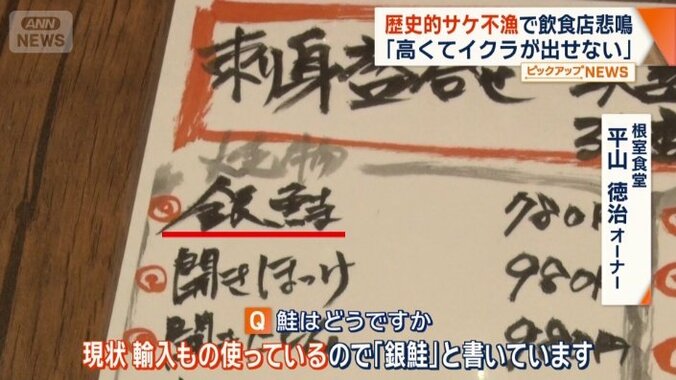 ANN
NEWS
歴史的サケ不漁で飲食店悲鳴
「高くてイクラが出せない」
ピックアップNEWS
根室食堂
平山 徳治 オーナー
刺身盛合せ
焼物
銀鮭 780円
開きほっけ 980円
Q 鮭はどうですか
現状 輸入もの使っているので「銀鮭」と書いています